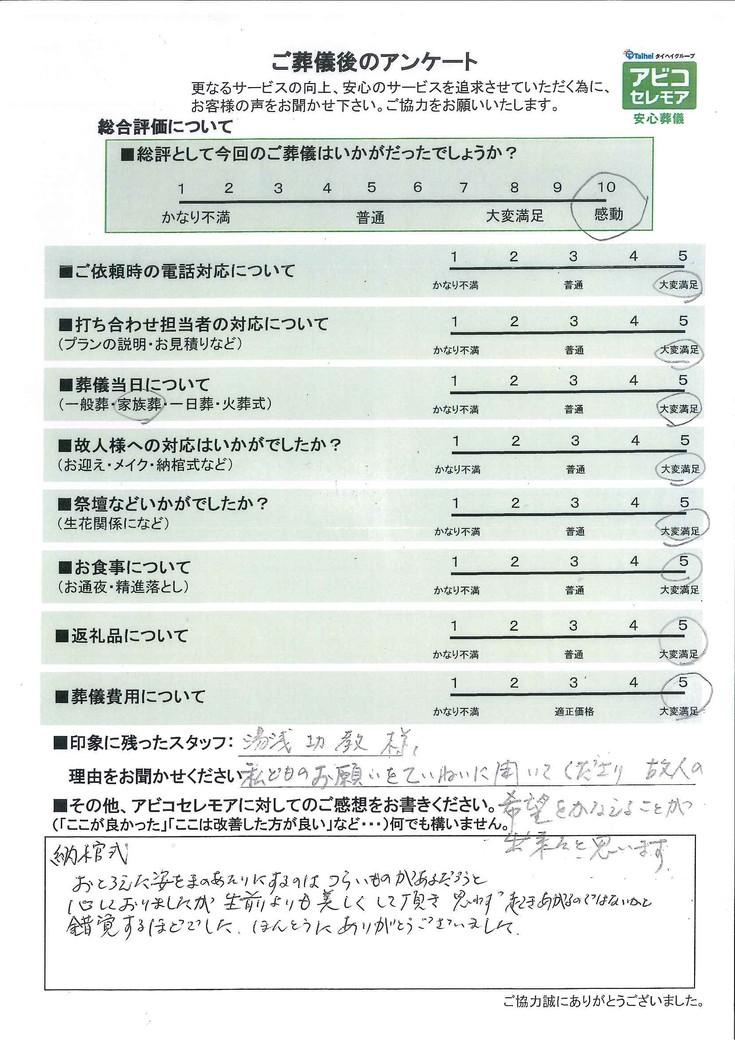 ご葬儀後のアンケート
Taihei タイヘイグループ
アビコ
セレモア
安心葬儀
更なるサービスの向上、安心のサービスを追求させていただく為に、
お客様の声をお聞かせ下さい。ご協力をお願いいたします。
総合評価について
■総評として今回のご葬儀はいかがだったでしょうか？
1 2 3 4 5 6 7 8 9 10
かなり不満 普通 大変満足 感動
■ご依頼時の電話対応について
1 2 3 4 5
かなり不満 普通 大変満足
■打ち合わせ担当者の対応について
(プランの説明・お見積りなど)
1 2 3 4 5
かなり不満 普通 大変満足
■葬儀当日について
(一般葬・家族葬・一日葬・火葬式)
1 2 3 4 5
かなり不満 普通 大変満足
■故人様への対応はいかがでしたか？
(お迎え・メイク・納棺式など)
1 2 3 4 5
かなり不満 普通 大変満足
■祭壇などいかがでしたか？
(生花関係になど)
1 2 3 4 5
かなり不満 普通 大変満足
■お食事について
(お通夜・精進落とし)
1 2 3 4 5
かなり不満 普通 大変満足
■返礼品について
1 2 3 4 5
かなり不満 普通 大変満足
■葬儀費用について
1 2 3 4 5
かなり不満 適正価格 大変満足
■印象に残ったスタッフ: 湯浅 功教 様
理由をお聞かせください 私どものお願いをていねいに聞いてくださり 故人の
希望をかなえることが
出来たと思います
■その他、アビコセレモアに対してのご感想をお書きください。
(「ここが良かった」「ここは改善した方が良い」など・・・)何でも構いません。
納棺式
おとろえた姿をまのあたりにするのは つらいものがあるだろうと
心しておりましたが 生前よりも美しくして頂き 思わず起きあがるのではないかと
錯覚するほどでした. ほんとうにありがとうございました.
ご協力誠にありがとうございました。